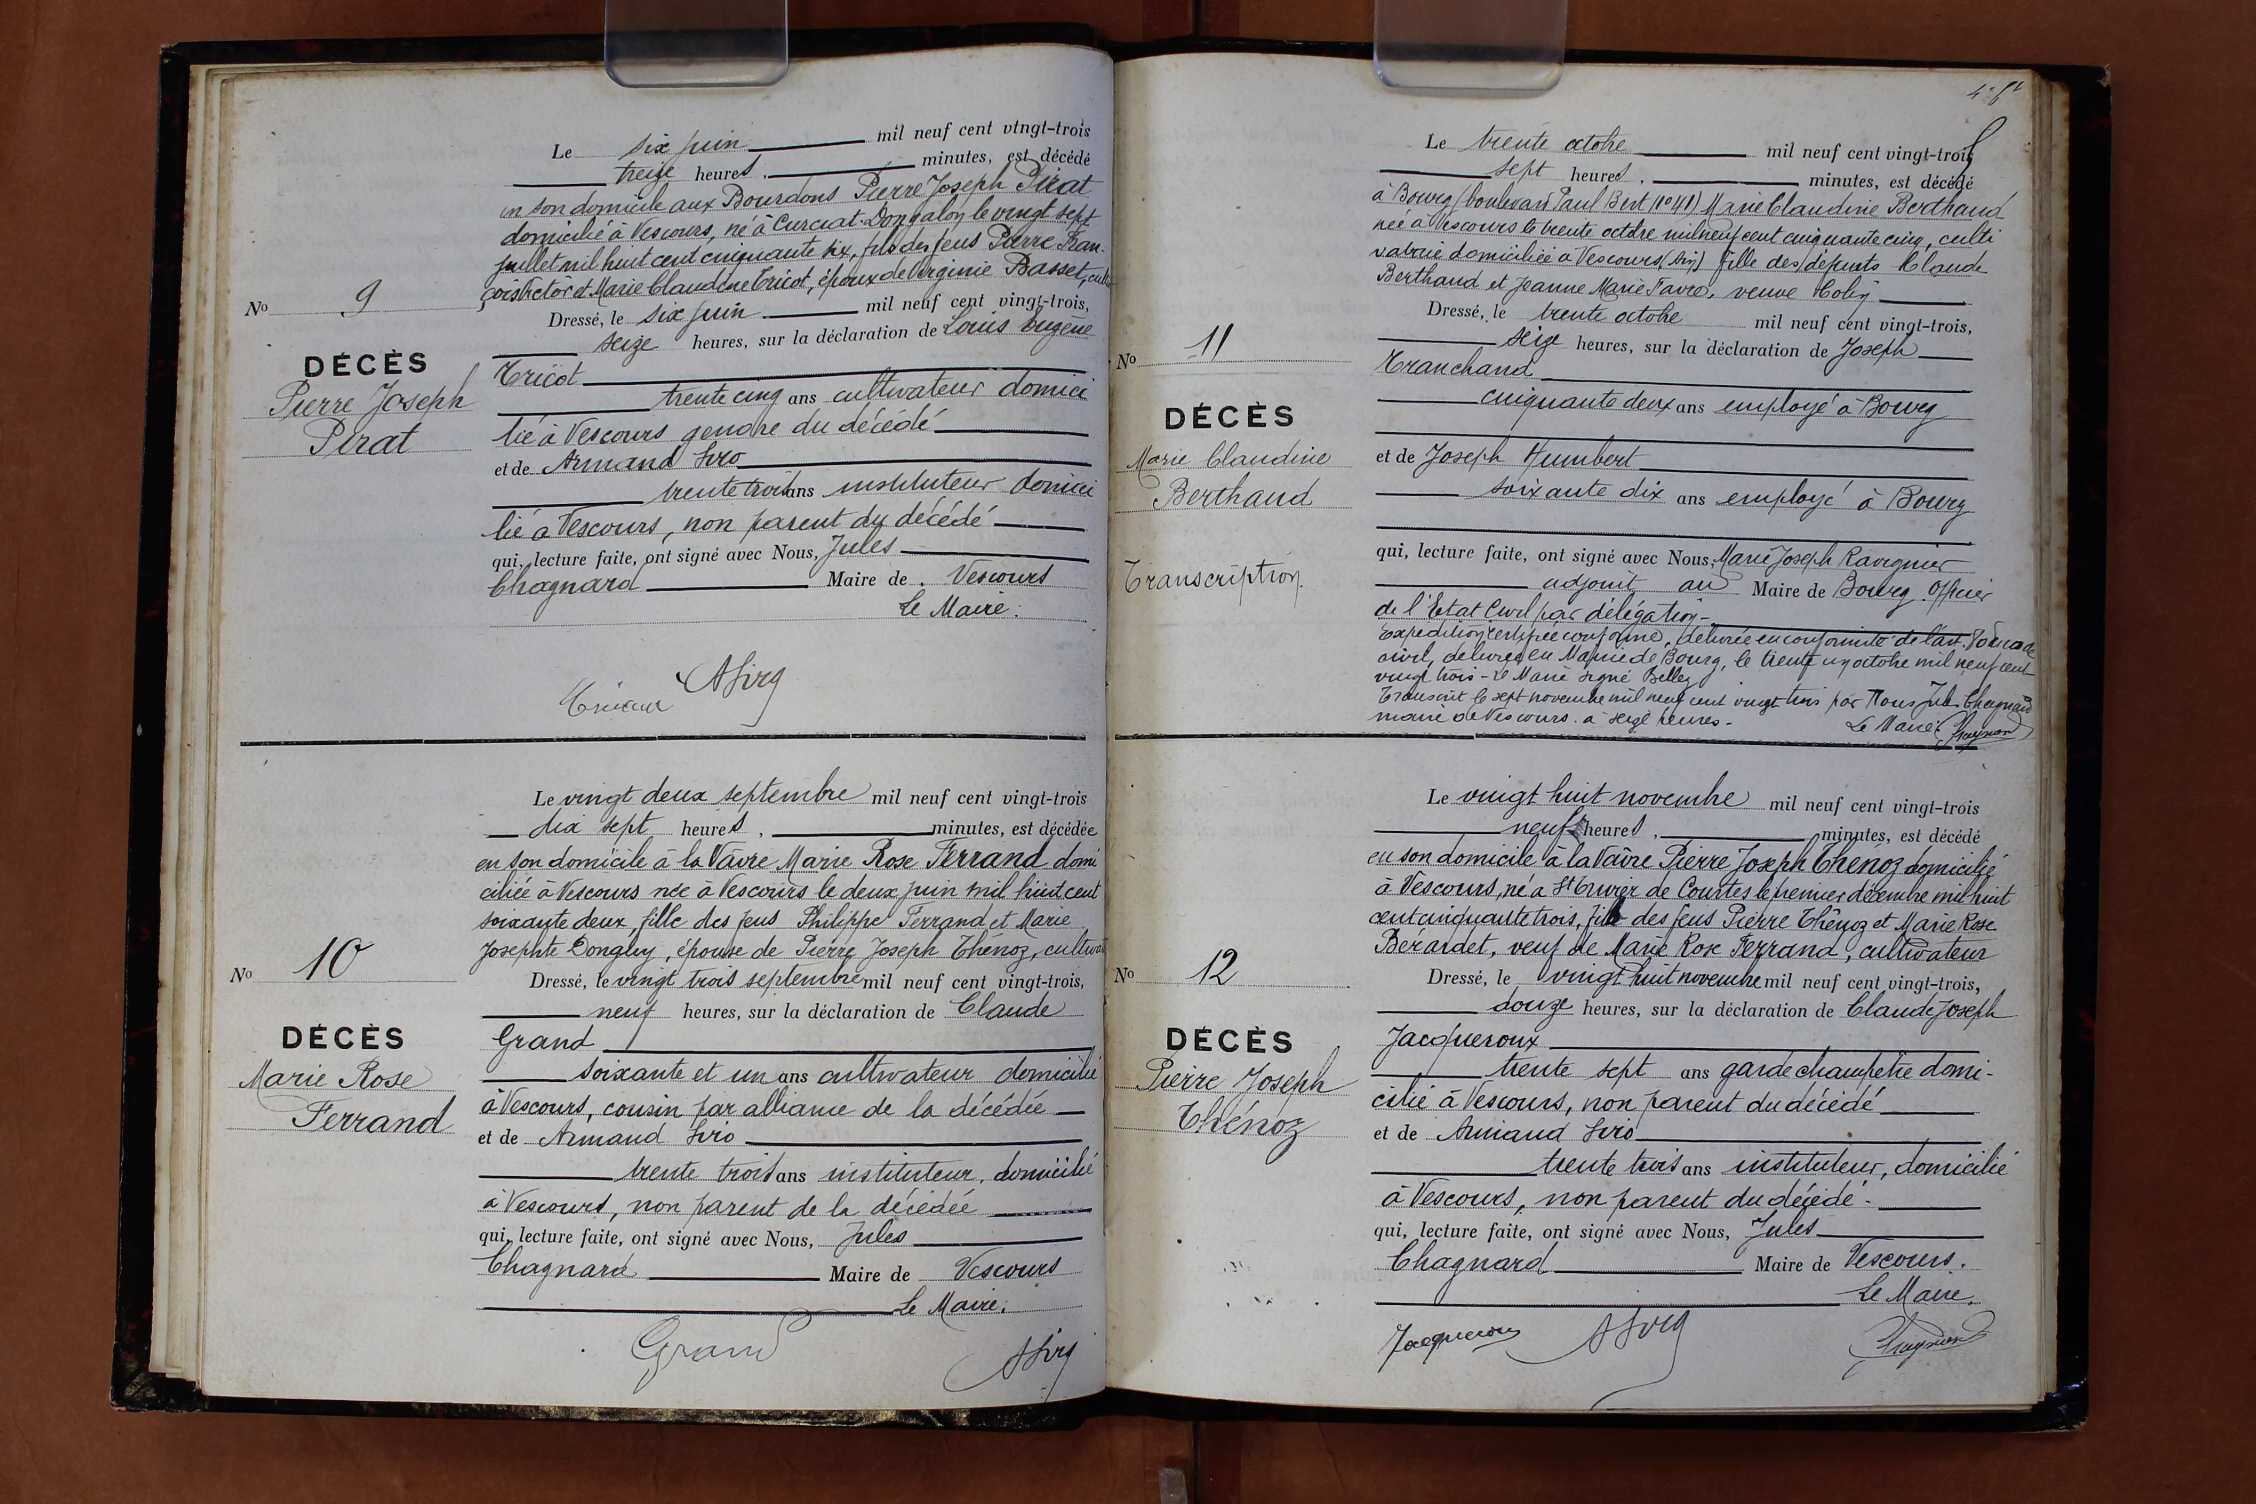 Le six juin mil neuf cent vingt-trois
treize heures, minutes, est décédé
en son domicile aux Bourdons Pierre Joseph Pirat
domicilié à Vescours, né à Curciat-Dongalon le vingt sept
juillet mil huit cent cinquante six, fils des feus Pierre Fran-
çois Victor et Marie Claudine Tricot, époux de Virginie Basset, cult
No 9
Dressé, le six juin mil neuf cent vingt-trois,
seize heures, sur la déclaration de Louis Eugène
DÉCÈS
Pierre Joseph
Pirat
Tricot
trente cinq ans cultivateur domici
lié à Vescours gendre du décédé
et de Armand Siro
trente trois ans instituteur domici
lié à Vescours, non parent du décédé
qui, lecture faite, ont signé avec Nous, Jules
Chagnard Maire de Vescours
Le Maire.
ASiro
Le vingt deux septembre mil neuf cent vingt-trois
dix sept heures, minutes, est décédée
en son domicile à la Vâvre Marie Rose Ferrand domi
ciliée à Vescours née à Vescours le deux juin mil huit cent
soixante deux, fille des feus Philippe Ferrand et Marie
Josephte Donguy, épouse de Pierre Joseph Thénoz, cultiva
No 10
Dressé, le vingt trois septembre mil neuf cent vingt-trois,
neuf heures, sur la déclaration de Claude
DÉCÈS
Marie Rose
Ferrand
Grand
soixante et un ans cultivateur domicilié
à Vescours, cousin par alliance de la décédée
et de Armand Siro
trente trois ans instituteur, domicilié
à Vescours, non parent de la décédée
qui, lecture faite, ont signé avec Nous, Jules
Chagnard Maire de Vescours
Le Maire.
Grand ASiro
Le trente octobre mil neuf cent vingt-trois
sept heures, minutes, est décédé
à Bourg (boulevard Paul Bert no 41) Marie Claudine Berthaud
née à Vescours le trente octobre mil neuf cent cinquante cinq, culti
vatrice domiciliée à Vescours (Ain) fille des défunts Claude
Berthaud et Jeanne Marie Favre, veuve Coley
No 11
Dressé, le trente octobre mil neuf cent vingt-trois,
seize heures, sur la déclaration de Joseph
DÉCÈS
Marie Claudine
Berthaud
Transcription.
Tranchand
cinquante deux ans employé à Bourg
et de Joseph Humbert
soixante dix ans employé à Bourg
qui, lecture faite, ont signé avec Nous, Marie Joseph Ravignier
adjoint au Maire de Bourg Officier
de l'Etat Civil par délégation -
Expédition certifiée conforme, délivrée en conformité de l'art. 80 du code
civil, délivrée en Mairie de Bourg, le trente un octobre mil neuf cent
vingt trois - Le Maire signé Belley
Transcrit le sept novembre mil neuf cent vingt trois par Nous Jules Chagnard
maire de Vescours. à seize heures -
Le Maire : Chagnard
Le vingt huit novembre mil neuf cent vingt-trois
neuf heures, minutes, est décédé
en son domicile à la Vâvre Pierre Joseph Thénoz domicilié
à Vescours, né à St Trivier de Courtes le premier décembre mil huit
cent cinquante trois, fils des feus Pierre Thénoz et Marie Rose
Bérardet, veuf de Marie Rose Ferrand, cultivateur
No 12
Dressé, le vingt huit novembre mil neuf cent vingt-trois,
douze heures, sur la déclaration de Claude Joseph
DÉCÈS
Pierre Joseph
Thénoz
Jacqueroux
trente sept ans garde champêtre domi-
cilié à Vescours, non parent du décédé
et de Armand Siro
trente trois ans instituteur, domicilié
à Vescours, non parent du décédé.
qui, lecture faite, ont signé avec Nous, Jules
Chagnard Maire de Vescours.
Le Maire.
Jacqueroux ASiro Chagnard